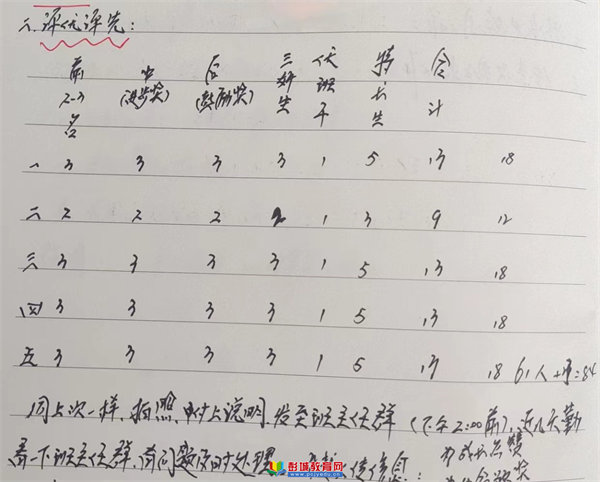 二、评优评先:
前2-3名 中(进步奖) 后(鼓励奖) 三好生 优班干 特长生 合计
一 3 3 3 3 1 5 13 18
二 2 2 2 2 1 3 9 12
三 3 3 3 3 1 5 13 18
四 3 3 3 3 1 5 13 18
五 3 3 3 3 1 5 13 18 61人 =84
同上次一样,拍照,附上说明,发至班主任群(下午2:00前),近几天勤
看一下班主任群,有问题及时处理
彭城教育网
www.pcjyedu.cn